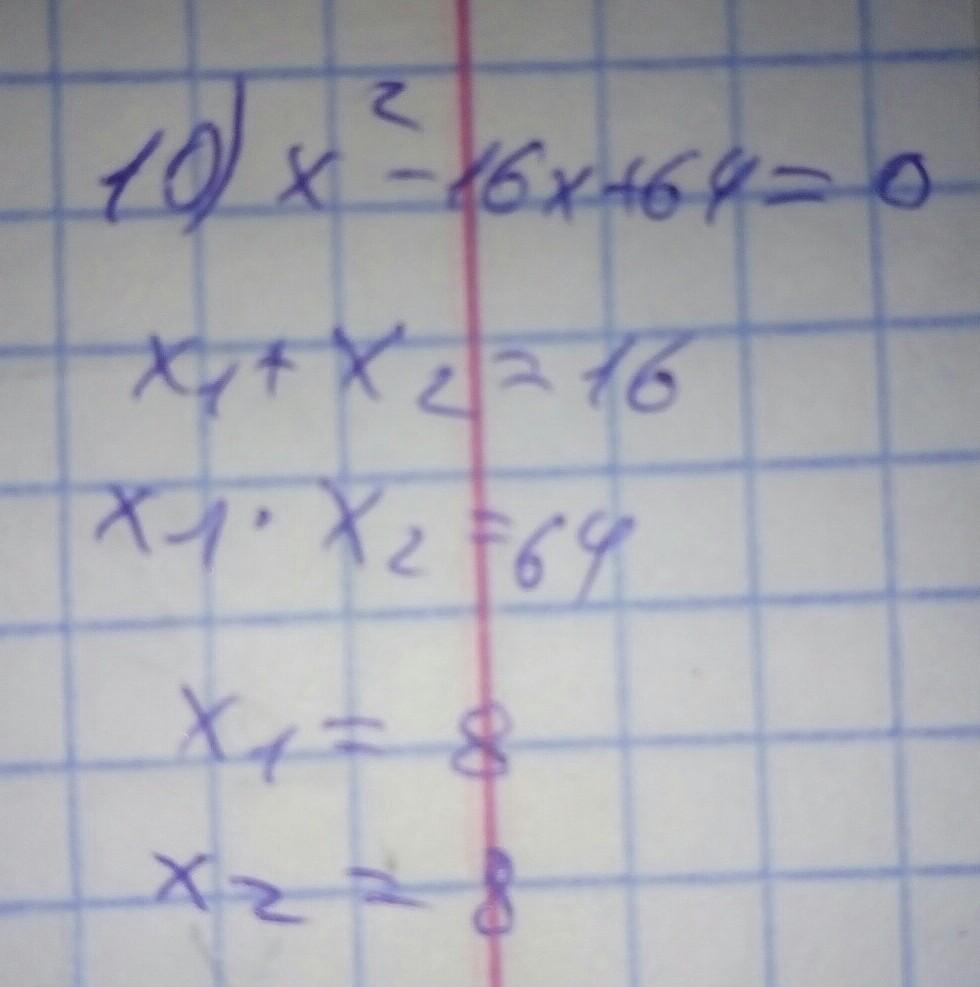 10) x² -16x+64=0
x₁+x₂=16
x₁·x₂=64
x₁=8
x₂=8